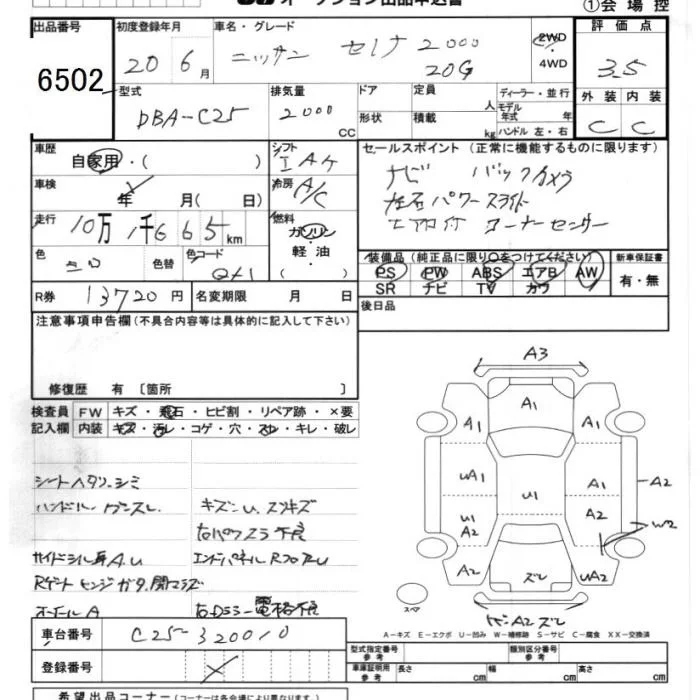 オークション出品申込書
①会場控
出品番号 初度登録年月 車名・グレード 評価点
6502 20 6月 ニッサン セレナ 2000 20G 2WD ・ 4WD 3.5
型式 排気量 ドア 定員 人 ディーラー・並行 外装 内装
DBA-C25 2000 CC 形状 積載 kg モデル年式 年式 ハンドル 左・右 C C
車歴 自家用・( ) シフト IAT セールスポイント(正常に機能するものに限ります)
車検 年 月( 日) 冷房 A/C ナビ バックカメラ
左右パワースライド
走行 10万 1千665 km 燃料 ガソリン 軽油 ( ) エアロ付 コーナーセンサー
色 色替 色コード
装備品(純正品に限り○をつけてください) 新車保証書
PS PW ABS エアB AW 有・無
SR ナビ TV カワ
R券 13720円 名変期限 月 日 後日品
注意事項申告欄(不具合内容等は具体的に記入して下さい)
修復歴 有〔箇所 〕
検査員記入欄 FW キズ・飛石・ヒビ割・リペア跡・×要
内装 キズ・汚レ・コゲ・穴・スレ・キレ・破レ
シートヘタリ・シミ
ハンドル・ スレ キズ・U.スリキズ
右パワスラ不良
サイドシル A.U
Rゲートヒンジガタ.
A 電格不良
A3
A1
A1 A1
UA1 U1 A1
A2
U1 A2
W2
A2 ズレ UA2
スペア
A2 ズレ
A-キズ E-エクボ U-凹み W-補修跡 S-サビ C-腐食 XX-交換済
車台番号 C25-320010
型式指定番号 参考 類別区分番号 参考
登録番号
車庫証明用 参考 長さ cm 幅 cm 高さ cm
希望出品コーナー(コーナーは各会場により異なります)